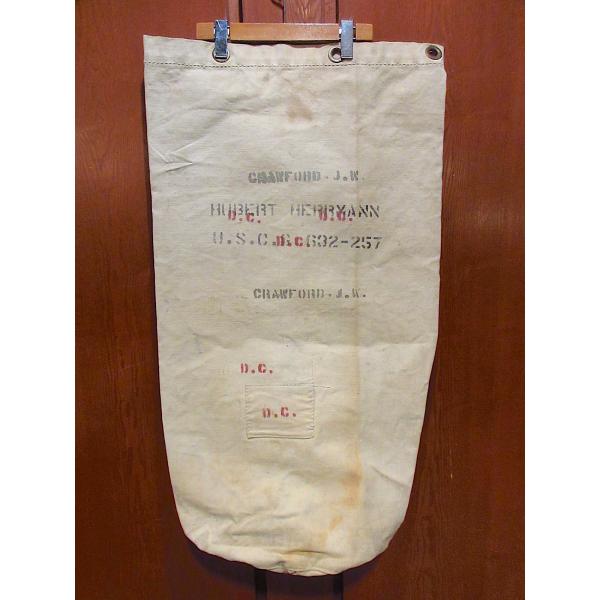 CRAWFORD. J.W.
HUBERT HERRMANN
D.C. D.C.
U.S.C.G. 632-257
D.C.
CRAWFORD. J.W.
D.C.
D.C.